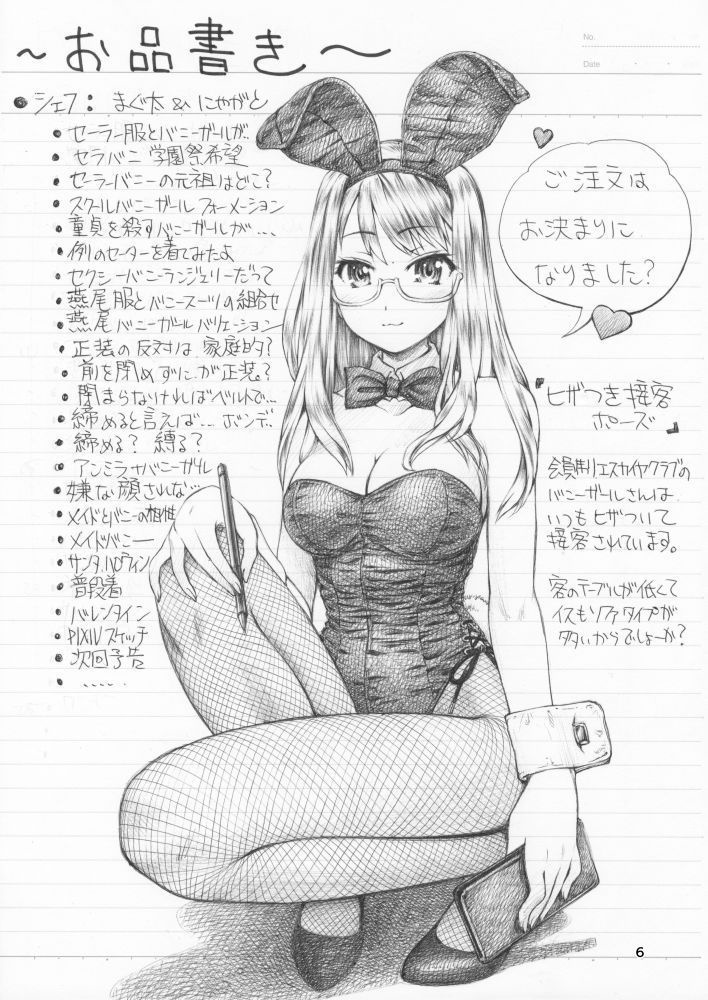 ～お品書き～
No.
Date
シェフ： まぐ太 & にゃがと
セーラー服とバニーガールが..
セラバニ 学園祭希望
セーラーバニーの元祖はどこ？
スクールバニーガール フォーメーション
童貞を殺すバニーガールが...
例のセーターを着てみたよ
セクシーバニーランジェリーだって
燕尾服とバニースーツの組合せ
燕尾バニーガールバリエーション
正装の反対は家庭的？
前を閉めずにが正装？
閉まらなければベルトで...
締めると言えば... ボンデ..
締める？ 縛る？
アンミラ+バニーガール
嫌な顔されな...
メイドとバニーの相性
メイドバニー
サンタ、ハロウィン
普段着
バレンタイン
PIXIVスケッチ
次回予告
.....
ご注文は
お決まりに
なりました？
『ヒザつき接客
ポーズ』
会員制エスカイヤクラブの
バニーガールさんは
いつもヒザついて
接客されています。
客のテーブルが低くて
イスもソファタイプが
多いからでしょーか？
6